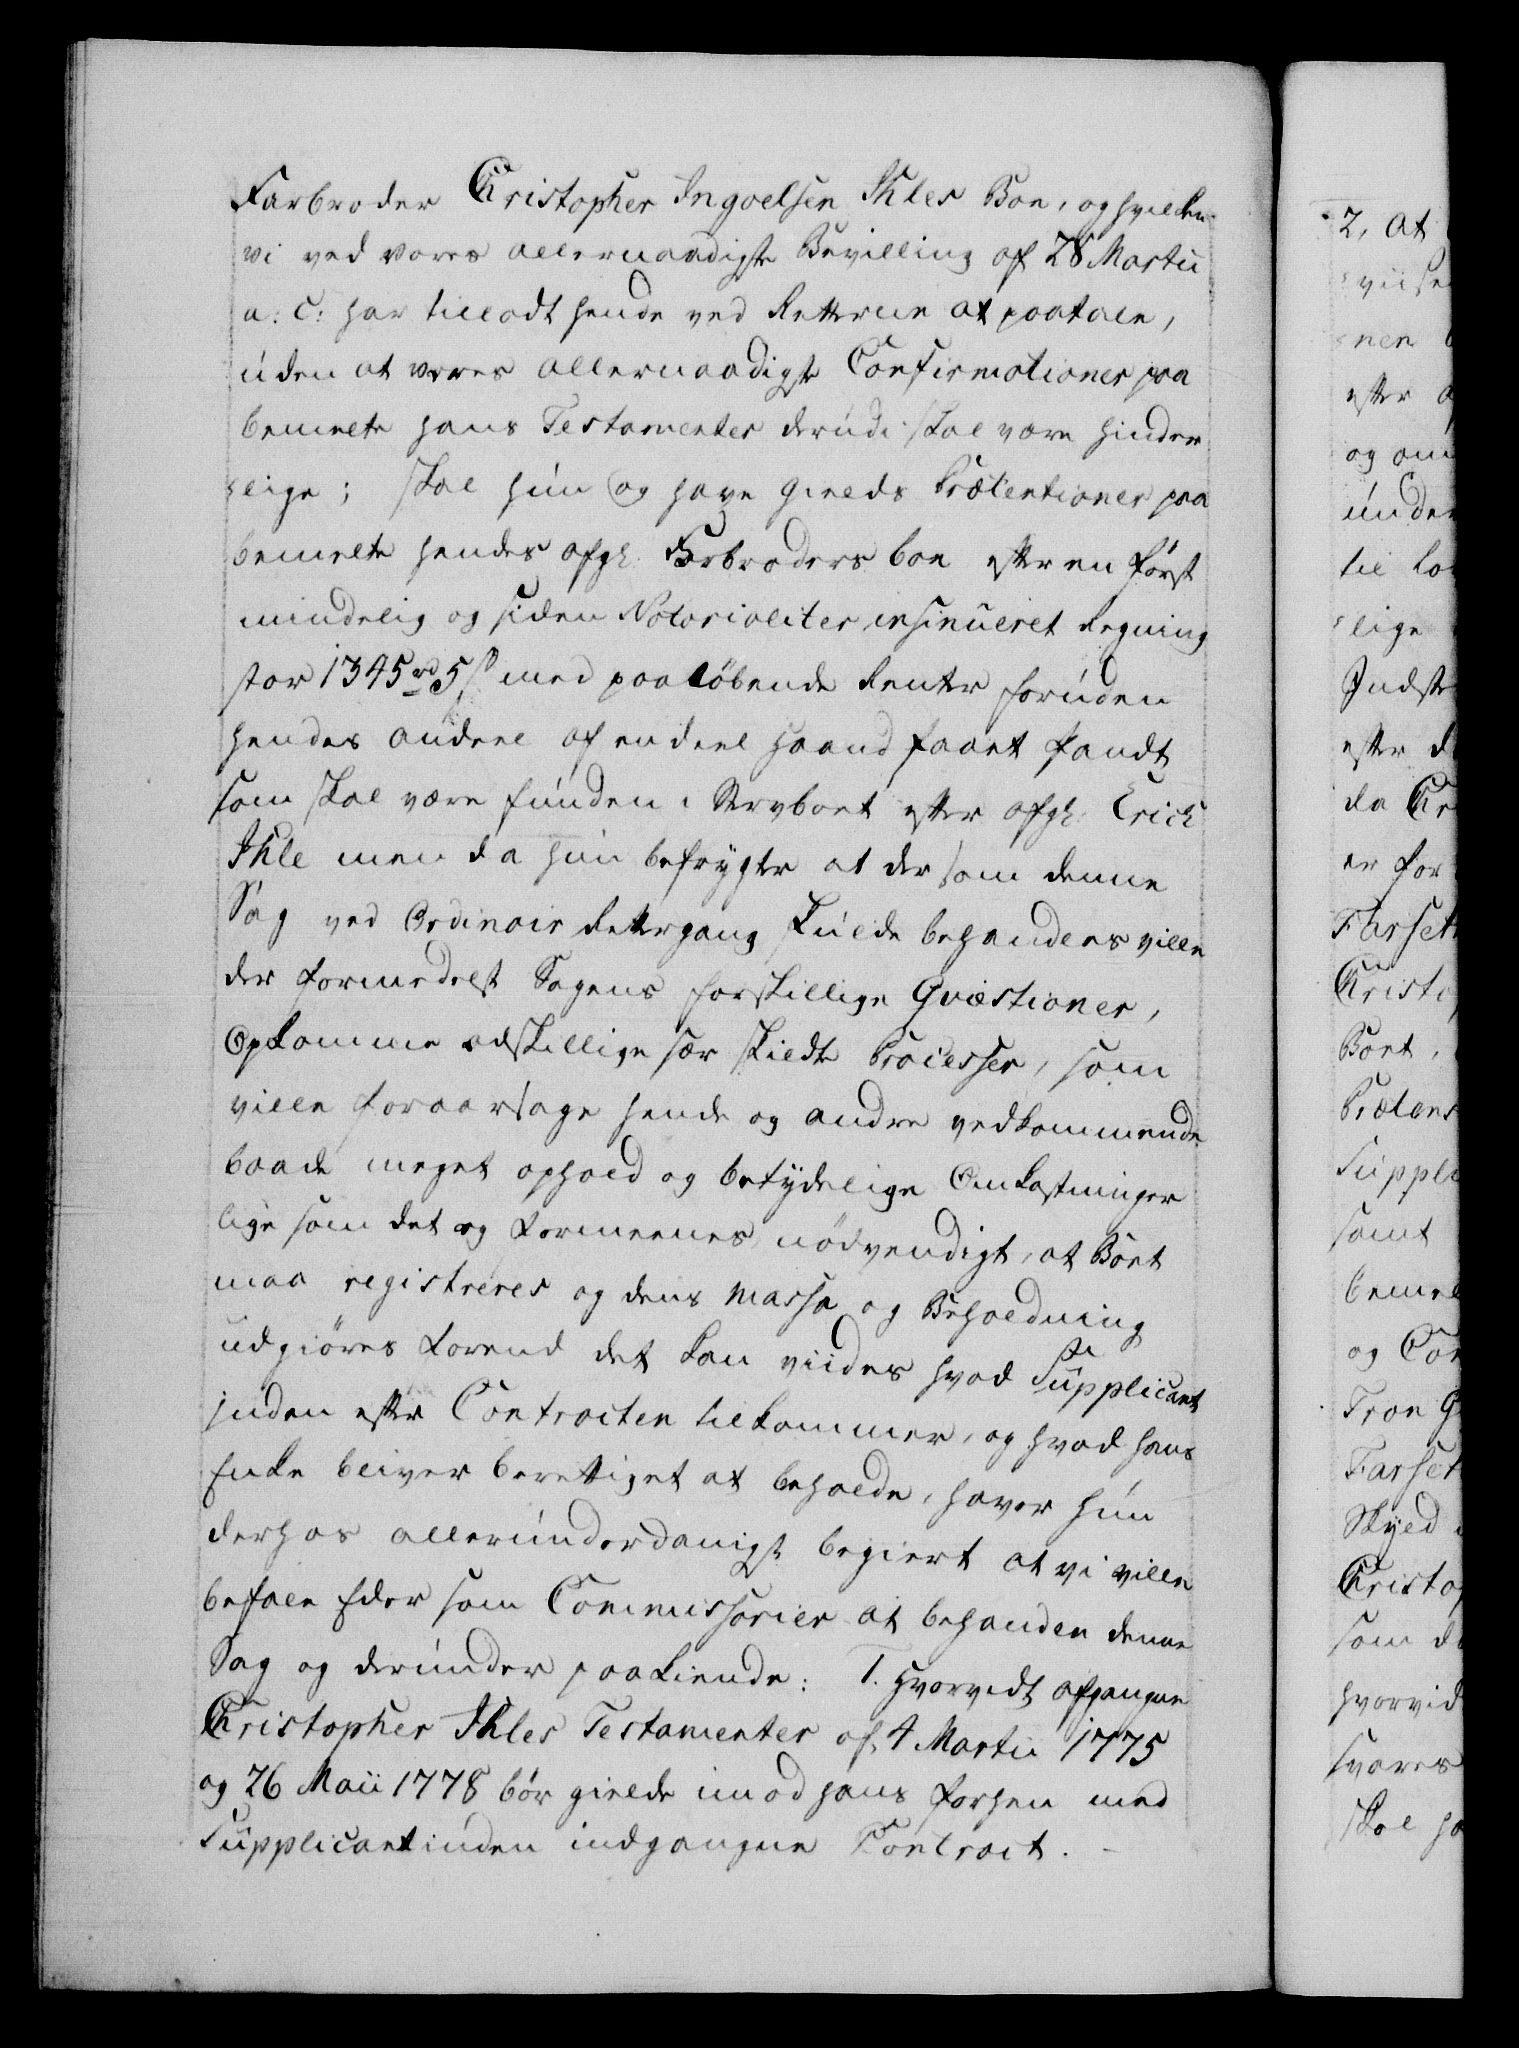 Farbroder Christopher Ingvelsen Ihles Boe, og hvilken
vi ved vores allernaadigste Bevilling af 28 Martii
a: c: har tilladt hende ved Retterne at paatale,
uden at vores allernaadigste Confirmationer paa
bemelte hans Testamenter derudi skal være hinder
lige; skal hun og have Gields Prætentioner paa
bemelte hendes afg: Farbroders boe efter en først
mindelig og siden Notarialiter insinueret Regning
stor 1345 rd 5 s med paaløbende Renter foruden
hendes andeel af en deel haand faaet Pandt
som skal være funden i Stervboet efter afg: Erich
Ihle men da hun befrygter at der som denne
Sag ved Ordinair Rettergang skulde behandles ville
der formedelst Sagens forskillige Qvæstioner,
Opkomme adskillige sær skildte Processer, som
ville foraarsage hende og andre vedkommende
baade meget ophold og betydelige Omkostninger
lige som det og formeenes nødvendigt, at Boet
maa registreres og dens massa og Beholdning
udgiøres forend det kan viides hvad Supplicant
inden efter Contracten tilkommer, og hvad hans
Enke bliver berettiget at beholde, haver hun
derhos allerunderdanigst begiert at vi ville
befale Eder som Commissarier at behandle denne
Sag og derunder paakiende: 1. hvorvidt afgangne
Christopher Ihles Testamenter af 4 Martii 1775
og 26 Maii 1778 bør gielde imod hans forhen med
Supplicantinden indgangne Contract.
2, at
viise
nen
efter
og om
under
til
lige
Indste
efter d
da Chr
er for
Farset
Christo
Boet,
Prætens
Suppli
samt
bemel
og Con
Tron G
Farset
Skyed
Christop
som d
hvorvid
svares
skal ha